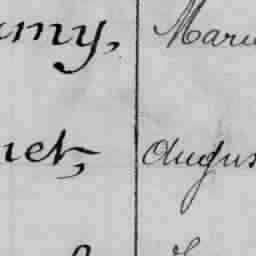 amy, Mari
net, Augus